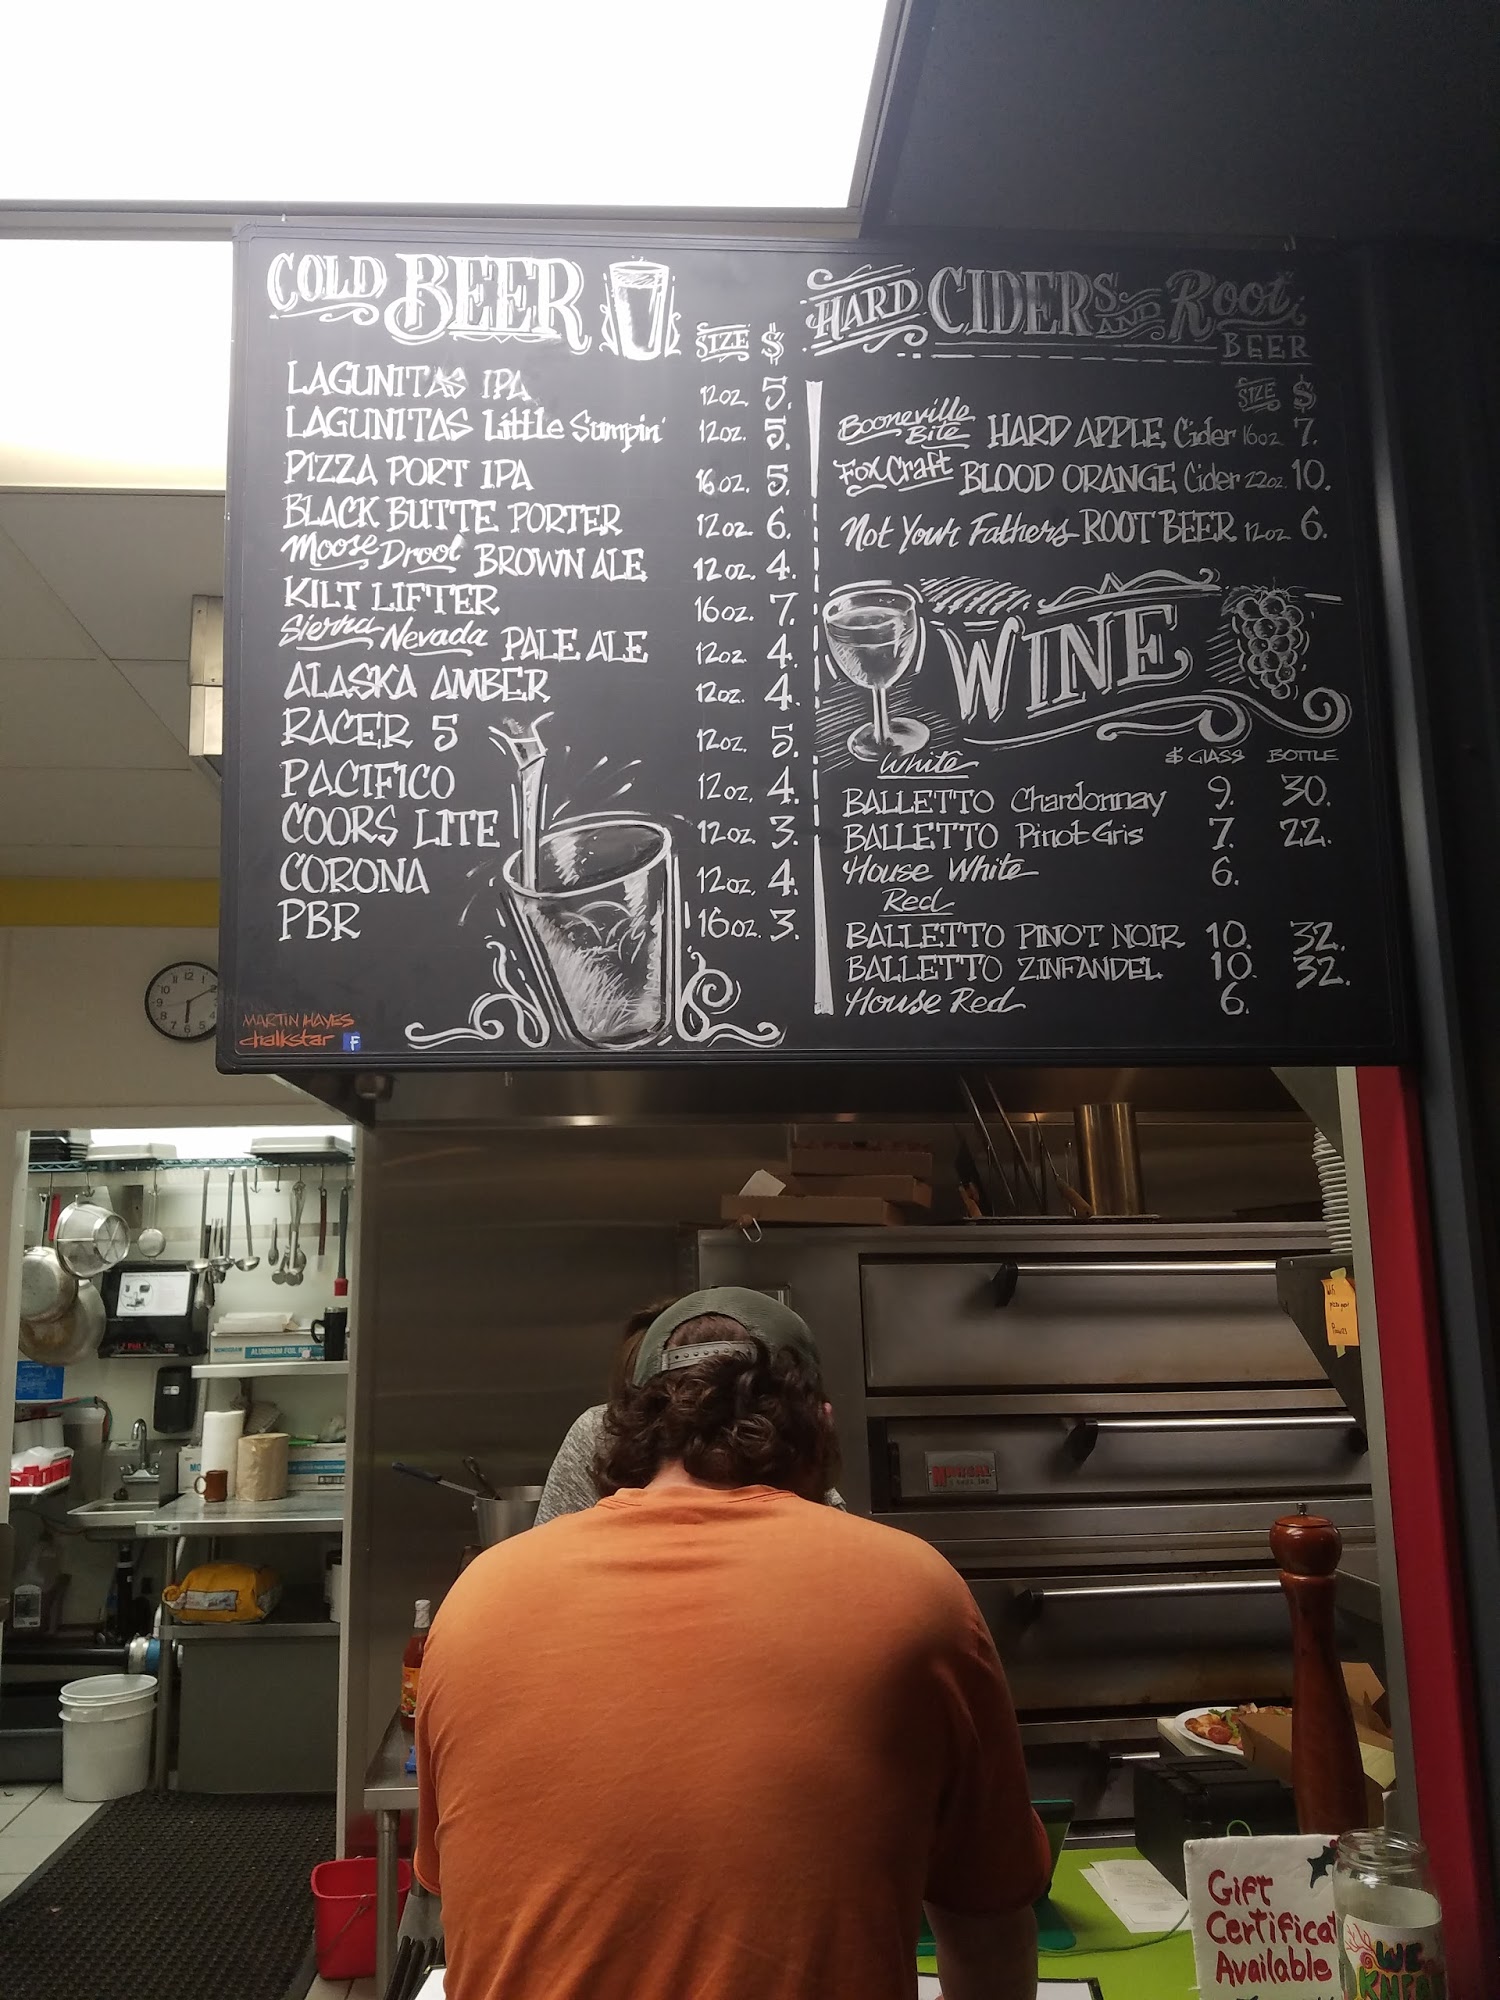 COLD BEER
SIZE $
LAGUNITAS IPA 12oz. 5.
LAGUNITAS Little Sumpin' 12oz. 5.
PIZZA PORT IPA 16oz. 5.
BLACK BUTTE PORTER 12oz 6.
Moose Drool BROWN ALE 12oz. 4.
KILT LIFTER 16oz. 7.
Sierra Nevada PALE ALE 12oz 4.
ALASKA AMBER 12oz. 4.
RACER 5 12oz. 5.
PACIFICO 12oz. 4.
COORS LITE 12oz. 3.
CORONA 12oz. 4.
PBR 16oz. 3.
MARTIN HAYES
chalkstar f
HARD CIDERS AND Root BEER
SIZE $
Booneville Bite HARD APPLE Cider 16oz 7.
Fox Craft BLOOD ORANGE Cider 22oz. 10.
Not Your Fathers ROOT BEER 12oz 6.
WINE
$ GLASS BOTTLE
White
BALLETTO Chardonnay 9. 30.
BALLETTO Pinot Gris 7. 22.
House White 6.
Red
BALLETTO PINOT NOIR 10. 32.
BALLETTO ZINFANDEL 10. 32.
House Red 6.
ALUMINUM FOIL
MARSAL
Gift
Certificat
Available
WE